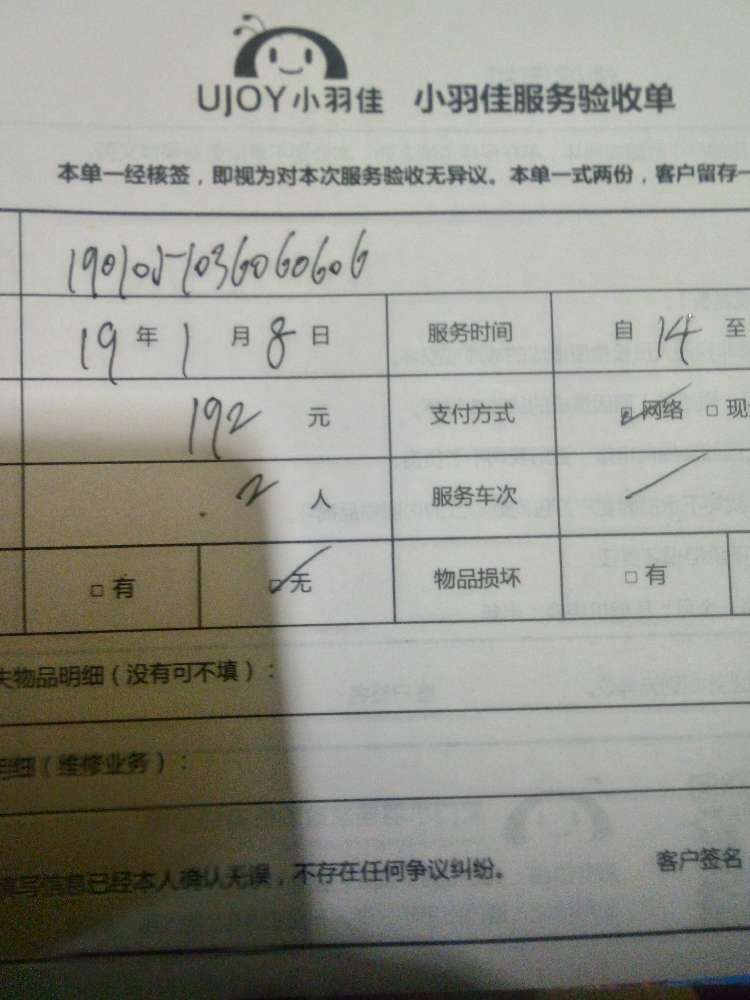 UJOY小羽佳 小羽佳服务验收单
本单一经核签，即视为对本次服务验收无异议。本单一式两份，客户留存一
190105103606060６
19 年 1 月 8 日 服务时间 自 14 至
192 元 支付方式 □网络 □现
2 人 服务车次
□有 □无 物品损坏 □有
失物品明细（没有可不填）：
明细（维修业务）：
填写信息已经本人确认无误，不存在任何争议纠纷。 客户签名